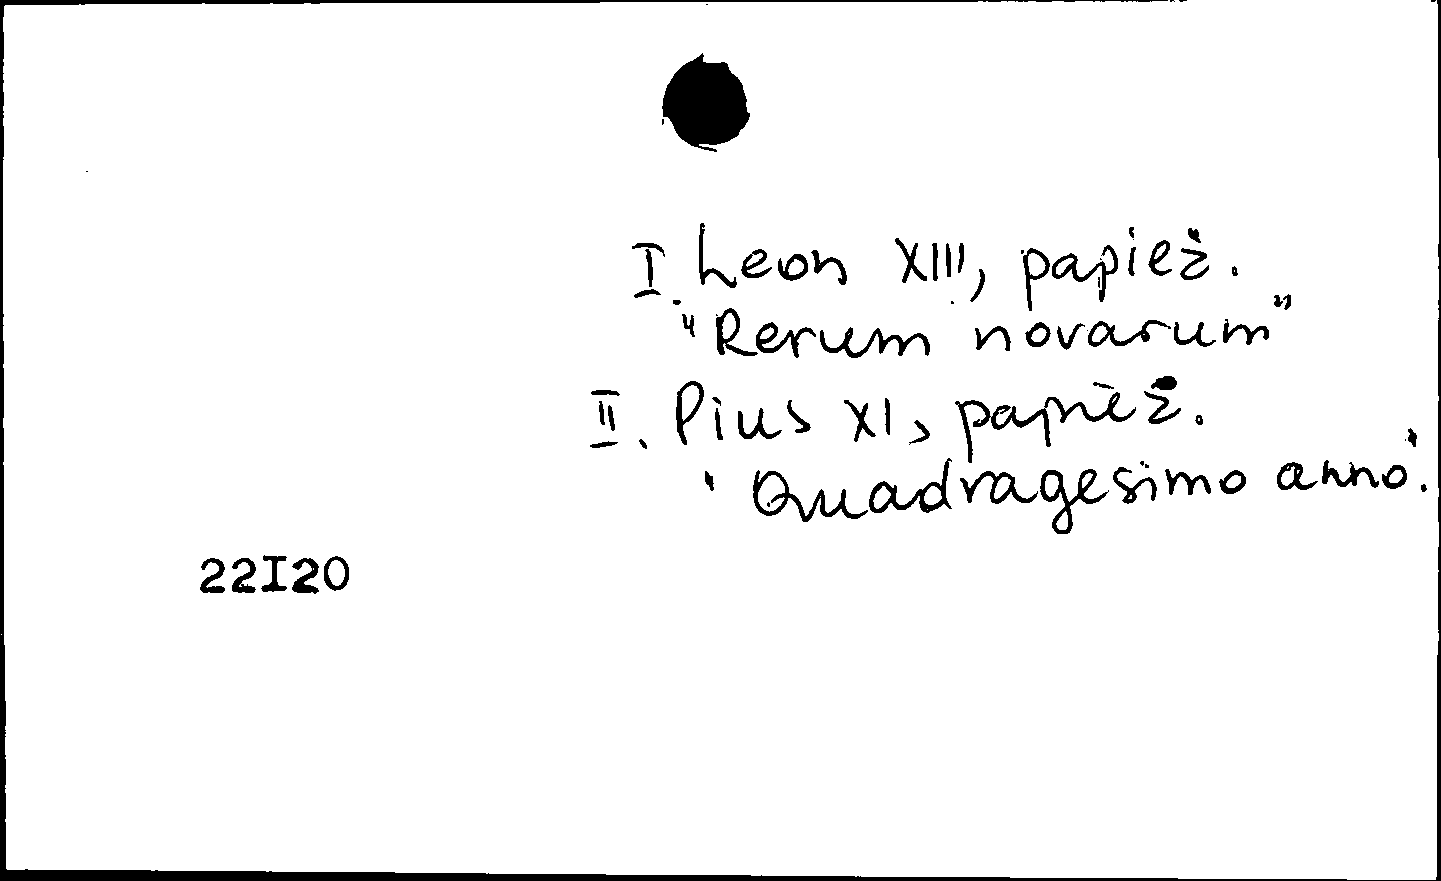 I. Leon XIII, papież.
"Rerum novarum"
II. Pius XI, papież.
"Quadragesimo anno".
22I20